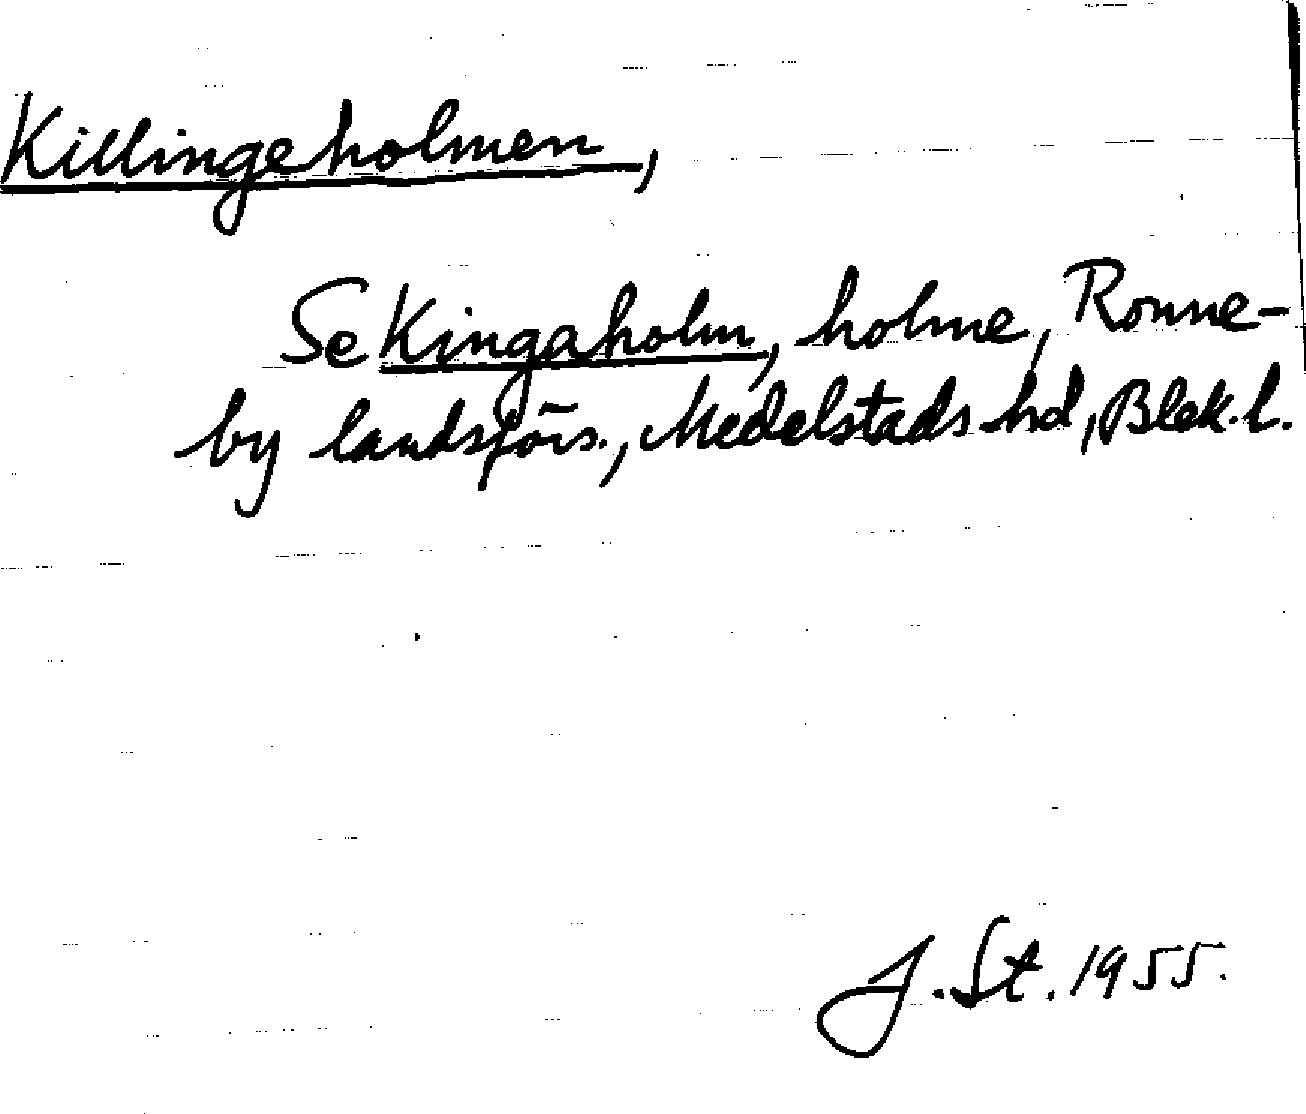 Killingeholmen,
Se Kingaholm, holme, Ronne-
by landsförs., Medelstads hd, Blek. l.
J. St. 1955.